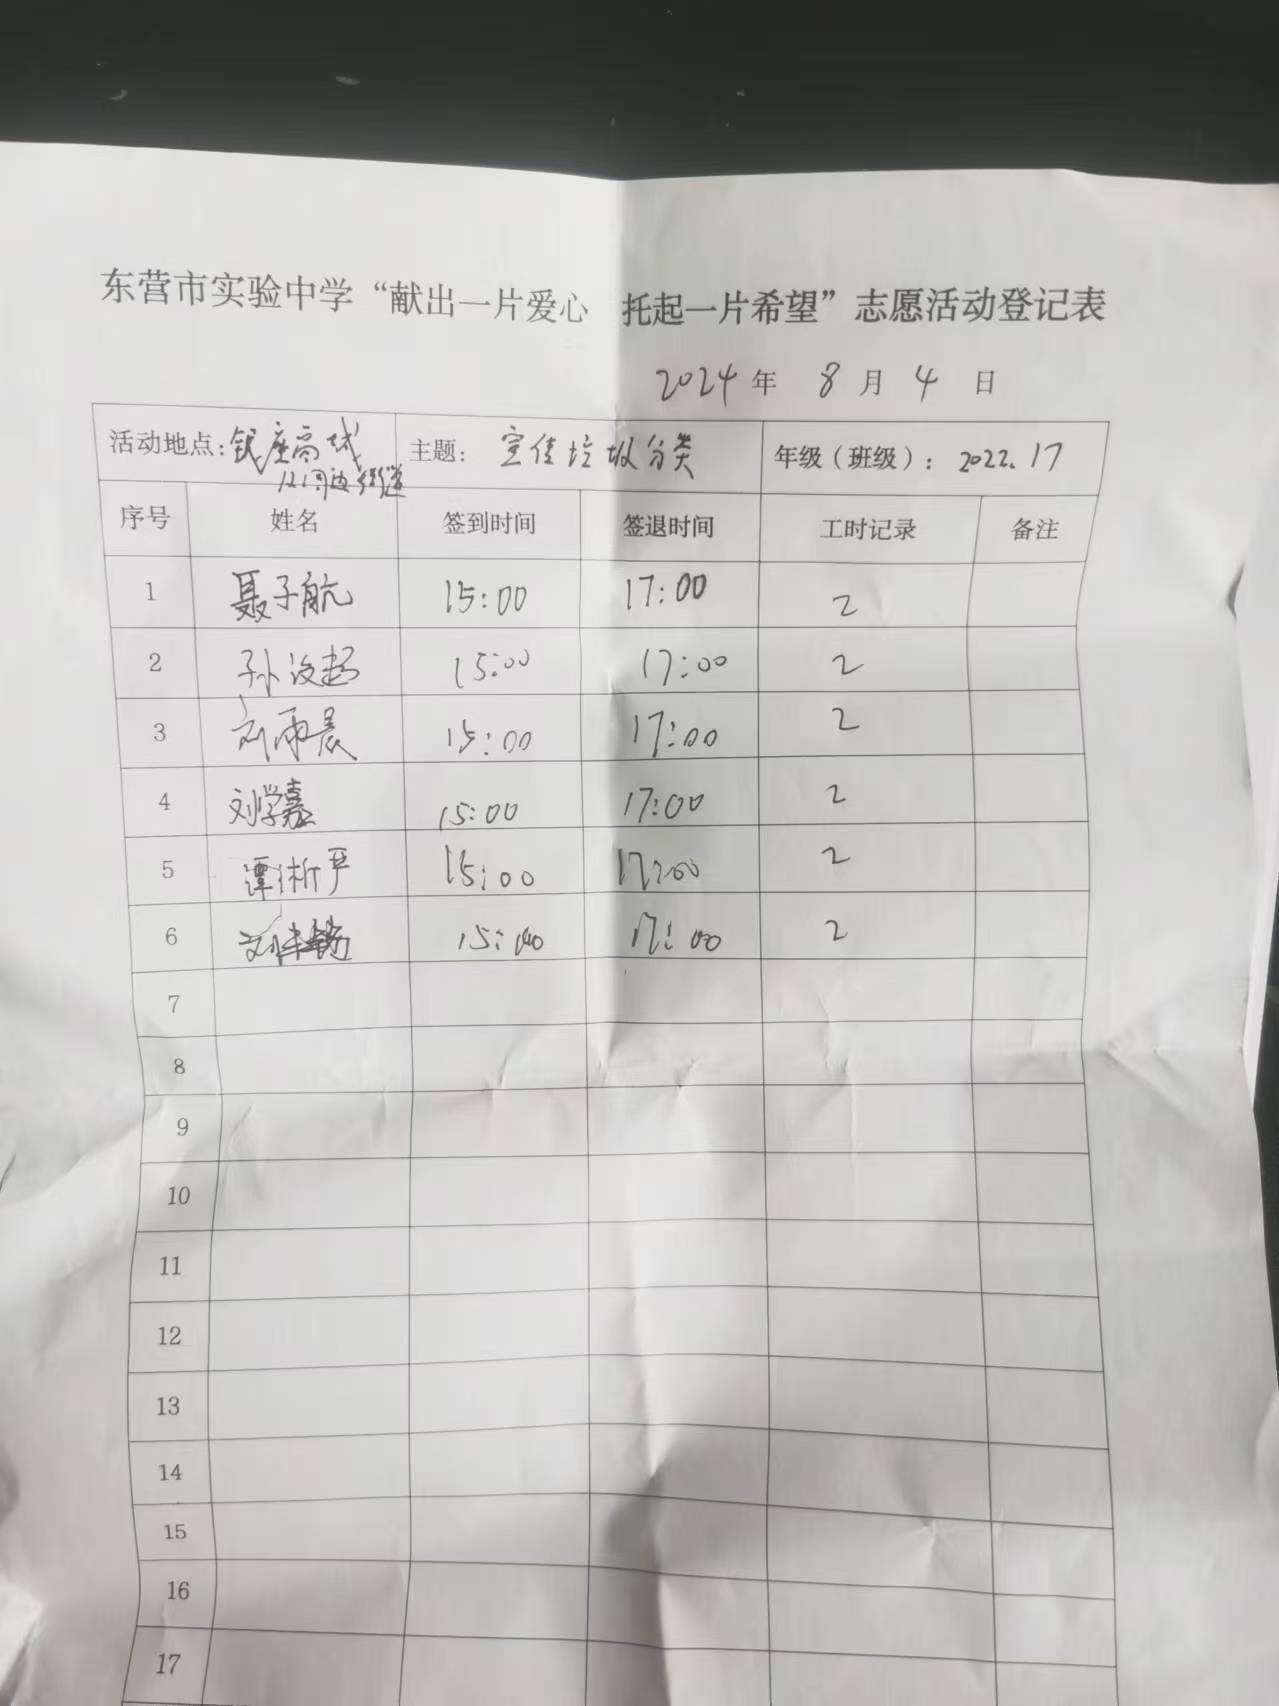 东营市实验中学“献出一片爱心 托起一片希望”志愿活动登记表
2024年 8月4日
活动地点：银座商城 及周边街道 主题：宣传垃圾分类 年级（班级）：2022.17
序号 姓名 签到时间 签退时间 工时记录 备注
1 聂子航 15:00 17:00 2
2 孙 15:00 17:00 2
3 刘雨晨 15:00 17:00 2
4 刘学嘉 15:00 17:00 2
5 谭淅严 15:00 17:00 2
6 15:00 17:00 2
7
8
9
10
11
12
13
14
15
16
17